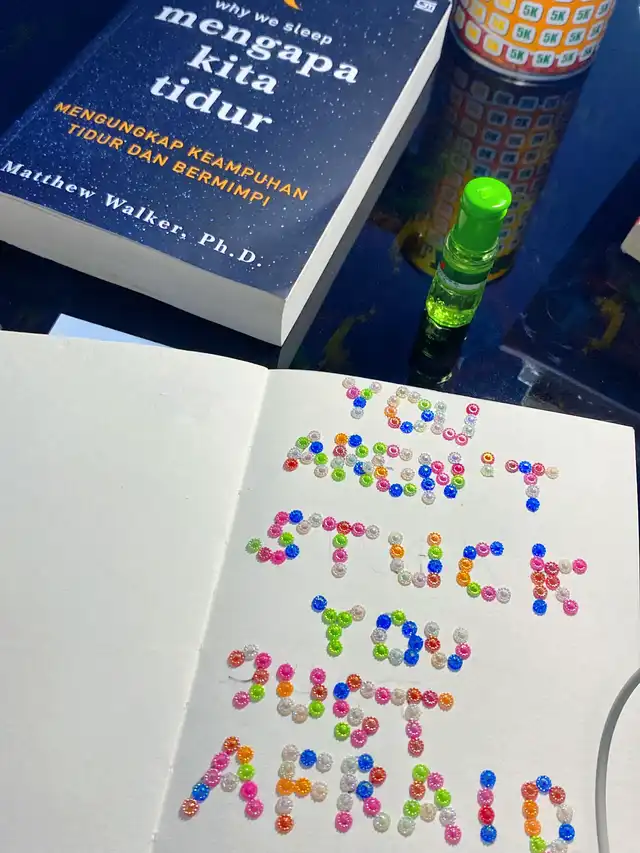 why we sleep
mengapa
kita
tidur
MENGUNGKAP KEAMPUHAN
TIDUR DAN BERMIMPI
Matthew Walker, Ph.D.
5K 5K 5K
5K 5K 5K 5K
5K 5K 5K
YOU
AREN'T
STUCK
YOU
JUST
AFRAID